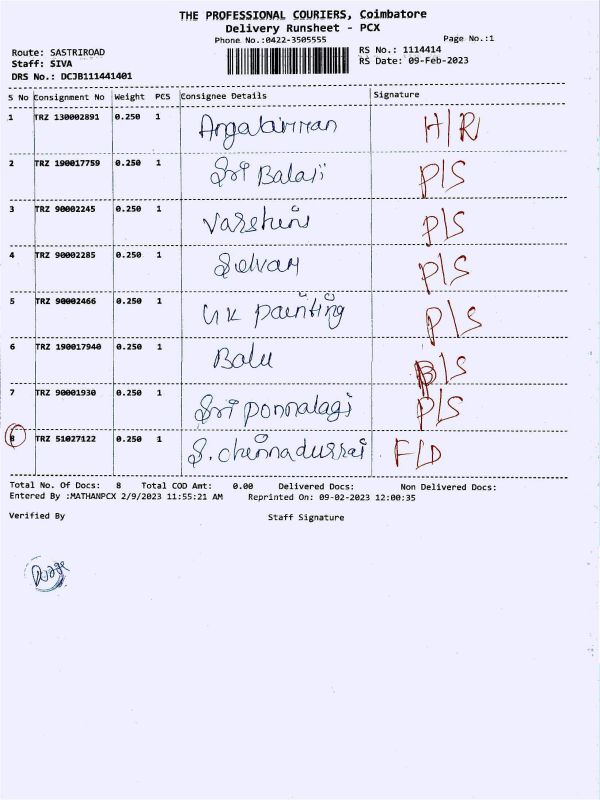 THE PROFESSIONAL COURIERS, Coimbatore
Delivery Runsheet - PCX
Phone No.:0422-3505555
Page No.:1
Route: SASTRIROAD
Staff: SIVA
DRS No.: DCJB111441401
RS No.: 1114414
RS Date: 09-Feb-2023
S No Consignment No Weight PCS Consignee Details Signature
1 TRZ 130002891 0.250 1 Angalamman H/R
2 TRZ 190017759 0.250 1 Sri Balaji P/S
3 TRZ 90002245 0.250 1 Varshini P/S
4 TRZ 90002285 0.250 1 Selvam P/S
5 TRZ 90002466 0.250 1 UK Painting P/S
6 TRZ 190017940 0.250 1 Balu P/S
7 TRZ 90001930 0.250 1 Sri ponnalagi P/S
8 TRZ 51027122 0.250 1 S. chinnadurrai F/D
Total No. Of Docs: 8 Total COD Amt: 0.00 Delivered Docs: Non Delivered Docs:
Entered By :MATHANPCX 2/9/2023 11:55:21 AM Reprinted On: 09-02-2023 12:00:35
Verified By Staff Signature